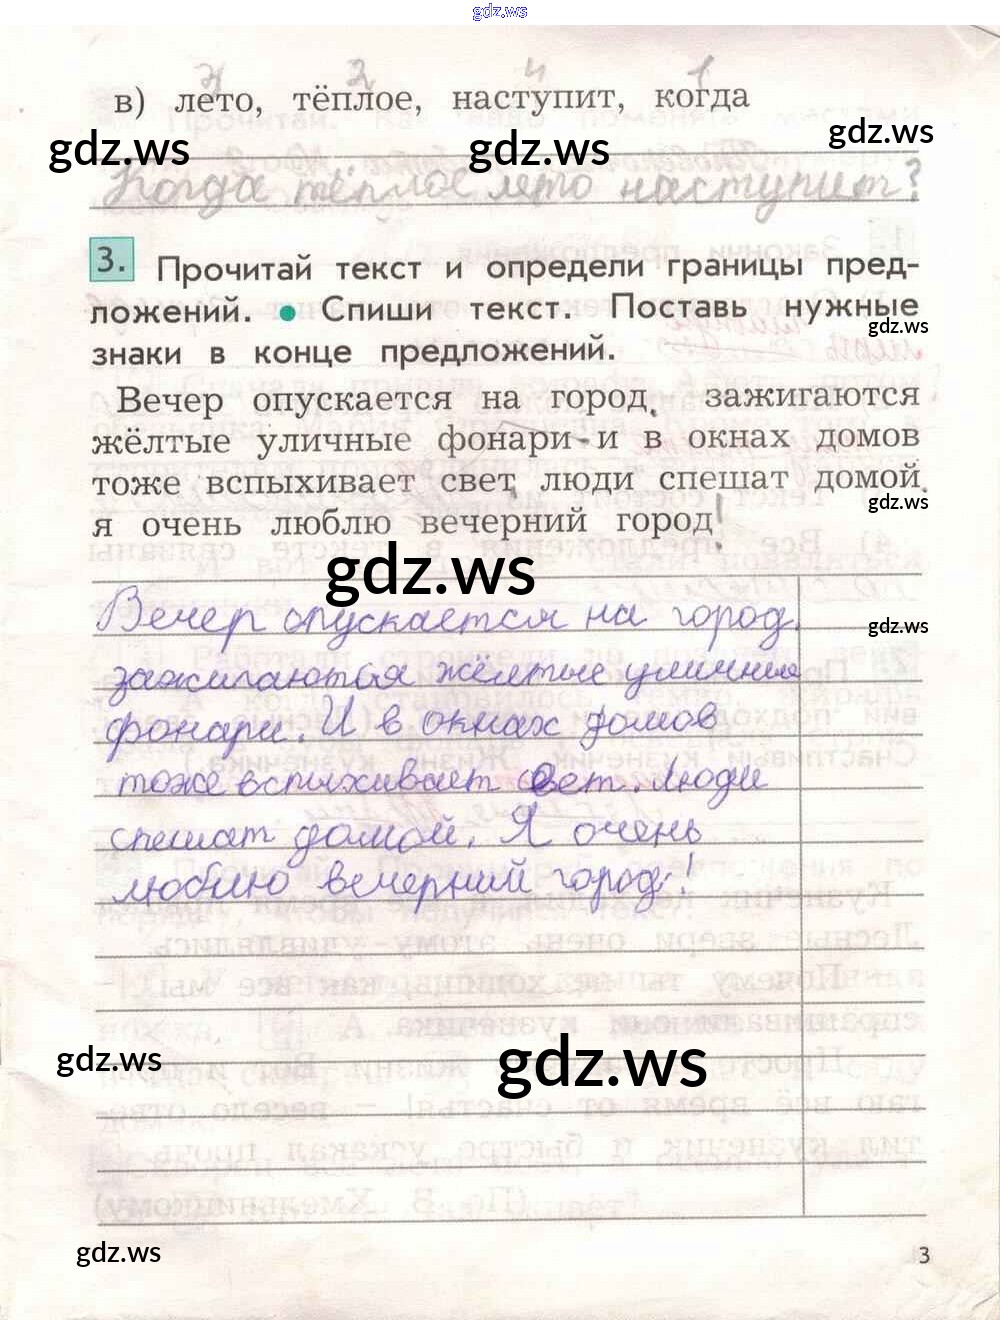 gdz.ws
3 2 4 1
в) лето, тёплое, наступит, когда
gdz.ws gdz.ws gdz.ws
Когда тёплое лето наступит?
3. Прочитай текст и определи границы пред-
ложений. ● Спиши текст. Поставь нужные
gdz.ws
знаки в конце предложений.
Вечер опускается на город, зажигаются
жёлтые уличные фонари и в окнах домов
тоже вспыхивает свет, люди спешат домой.
gdz.ws
я очень люблю вечерний город!
gdz.ws
Вечер опускается на город,
gdz.ws
зажигаются жёлтые уличные
фонари. И в окнах домов
тоже вспыхивает свет. Люди
спешат домой. Я очень
люблю вечерний город!
gdz.ws gdz.ws
gdz.ws
3